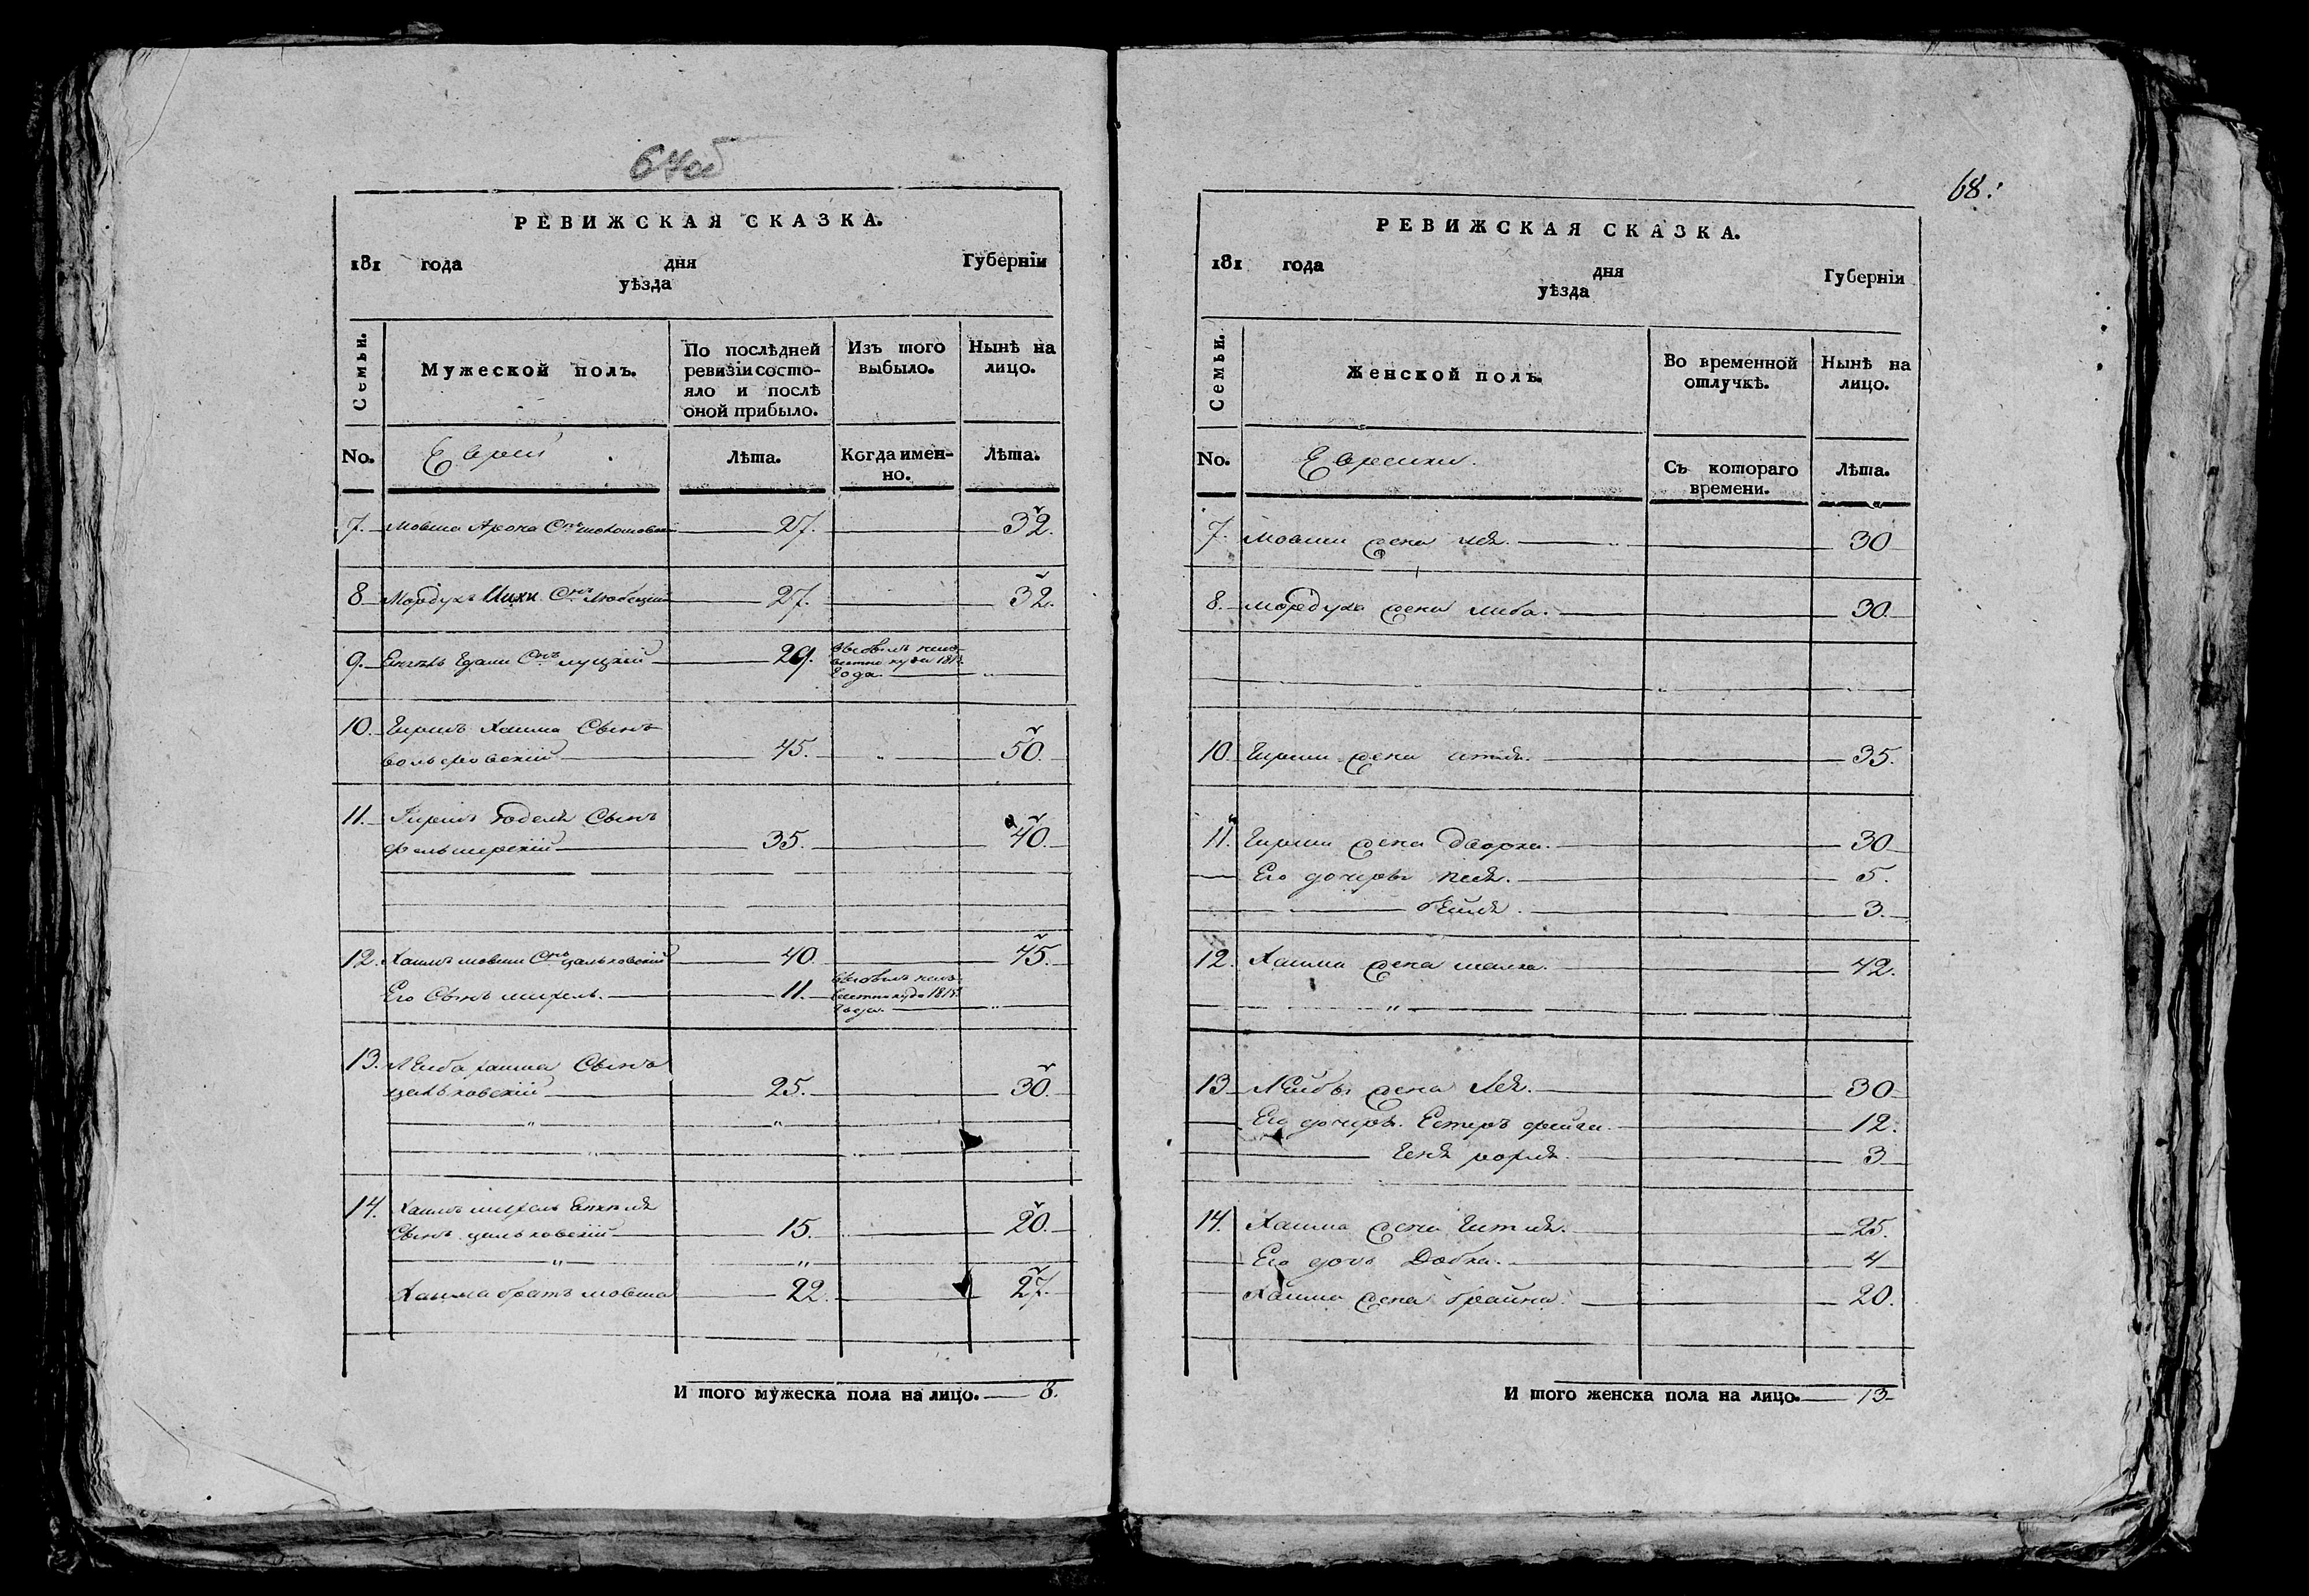 64об
РЕВИЖСКАЯ СКАЗКА.
181 года дня Губерніи
уѣзда
Семьи.
Мужеской полъ.
По послѣдней ревизіи состо-
яло и послѣ
оной прибыло.
Изъ того выбыло.
Нынѣ на лицо.
No.
Евреи
Лѣта.
Когда имен-
но.
Лѣта.
7. Мовша Арона Снъ 27. 32.
8 Мордухъ Ицки Снъ Любецкій 27. 32.
9. Снъ луцкій 29. выбылъ неиз-
вестно куда 181
года
10. Гиршъ Хаима Сынъ
вольфовскій 45. 50.
11. Гиршъ Годеля Сынъ
фальшерскій 35. 40.
12. Хаимъ мовши Снъ цальковскій 40. 45.
Его Сынъ 11. выбылъ неиз-
вестно куда 181
года
13. Лейба хаима Сынъ
цальковскій 25. 30.
14. Хаимъ
Сынъ цальковскій 15. 20.
Хаима братъ мовша 22. 27.
И того мужеска пола на лицо. 8.
68.
РЕВИЖСКАЯ СКАЗКА.
181 года дня Губерніи
уѣзда
Семьи.
Женской полъ.
Во временной отлучкѣ.
Нынѣ на лицо.
No.
Еврейки.
Съ котораго времени.
Лѣта.
7. Мовши жена лея. 30
8. мордуха жена либа. 30.
10. Гирши жена 35.
11. Гирши жена Дворка. 30
Его дочери песя. 5.
бейля. 3.
12. Хаима жена малка. 42.
13 Лейбы жена Лея. 30
Его дочери. Естеръ фейга. 12.
3
14. Хаима жена Гитля. 25.
Его дочь Добка. 4
Хаима жена брайна. 20.
И того женска пола на лицо. 13